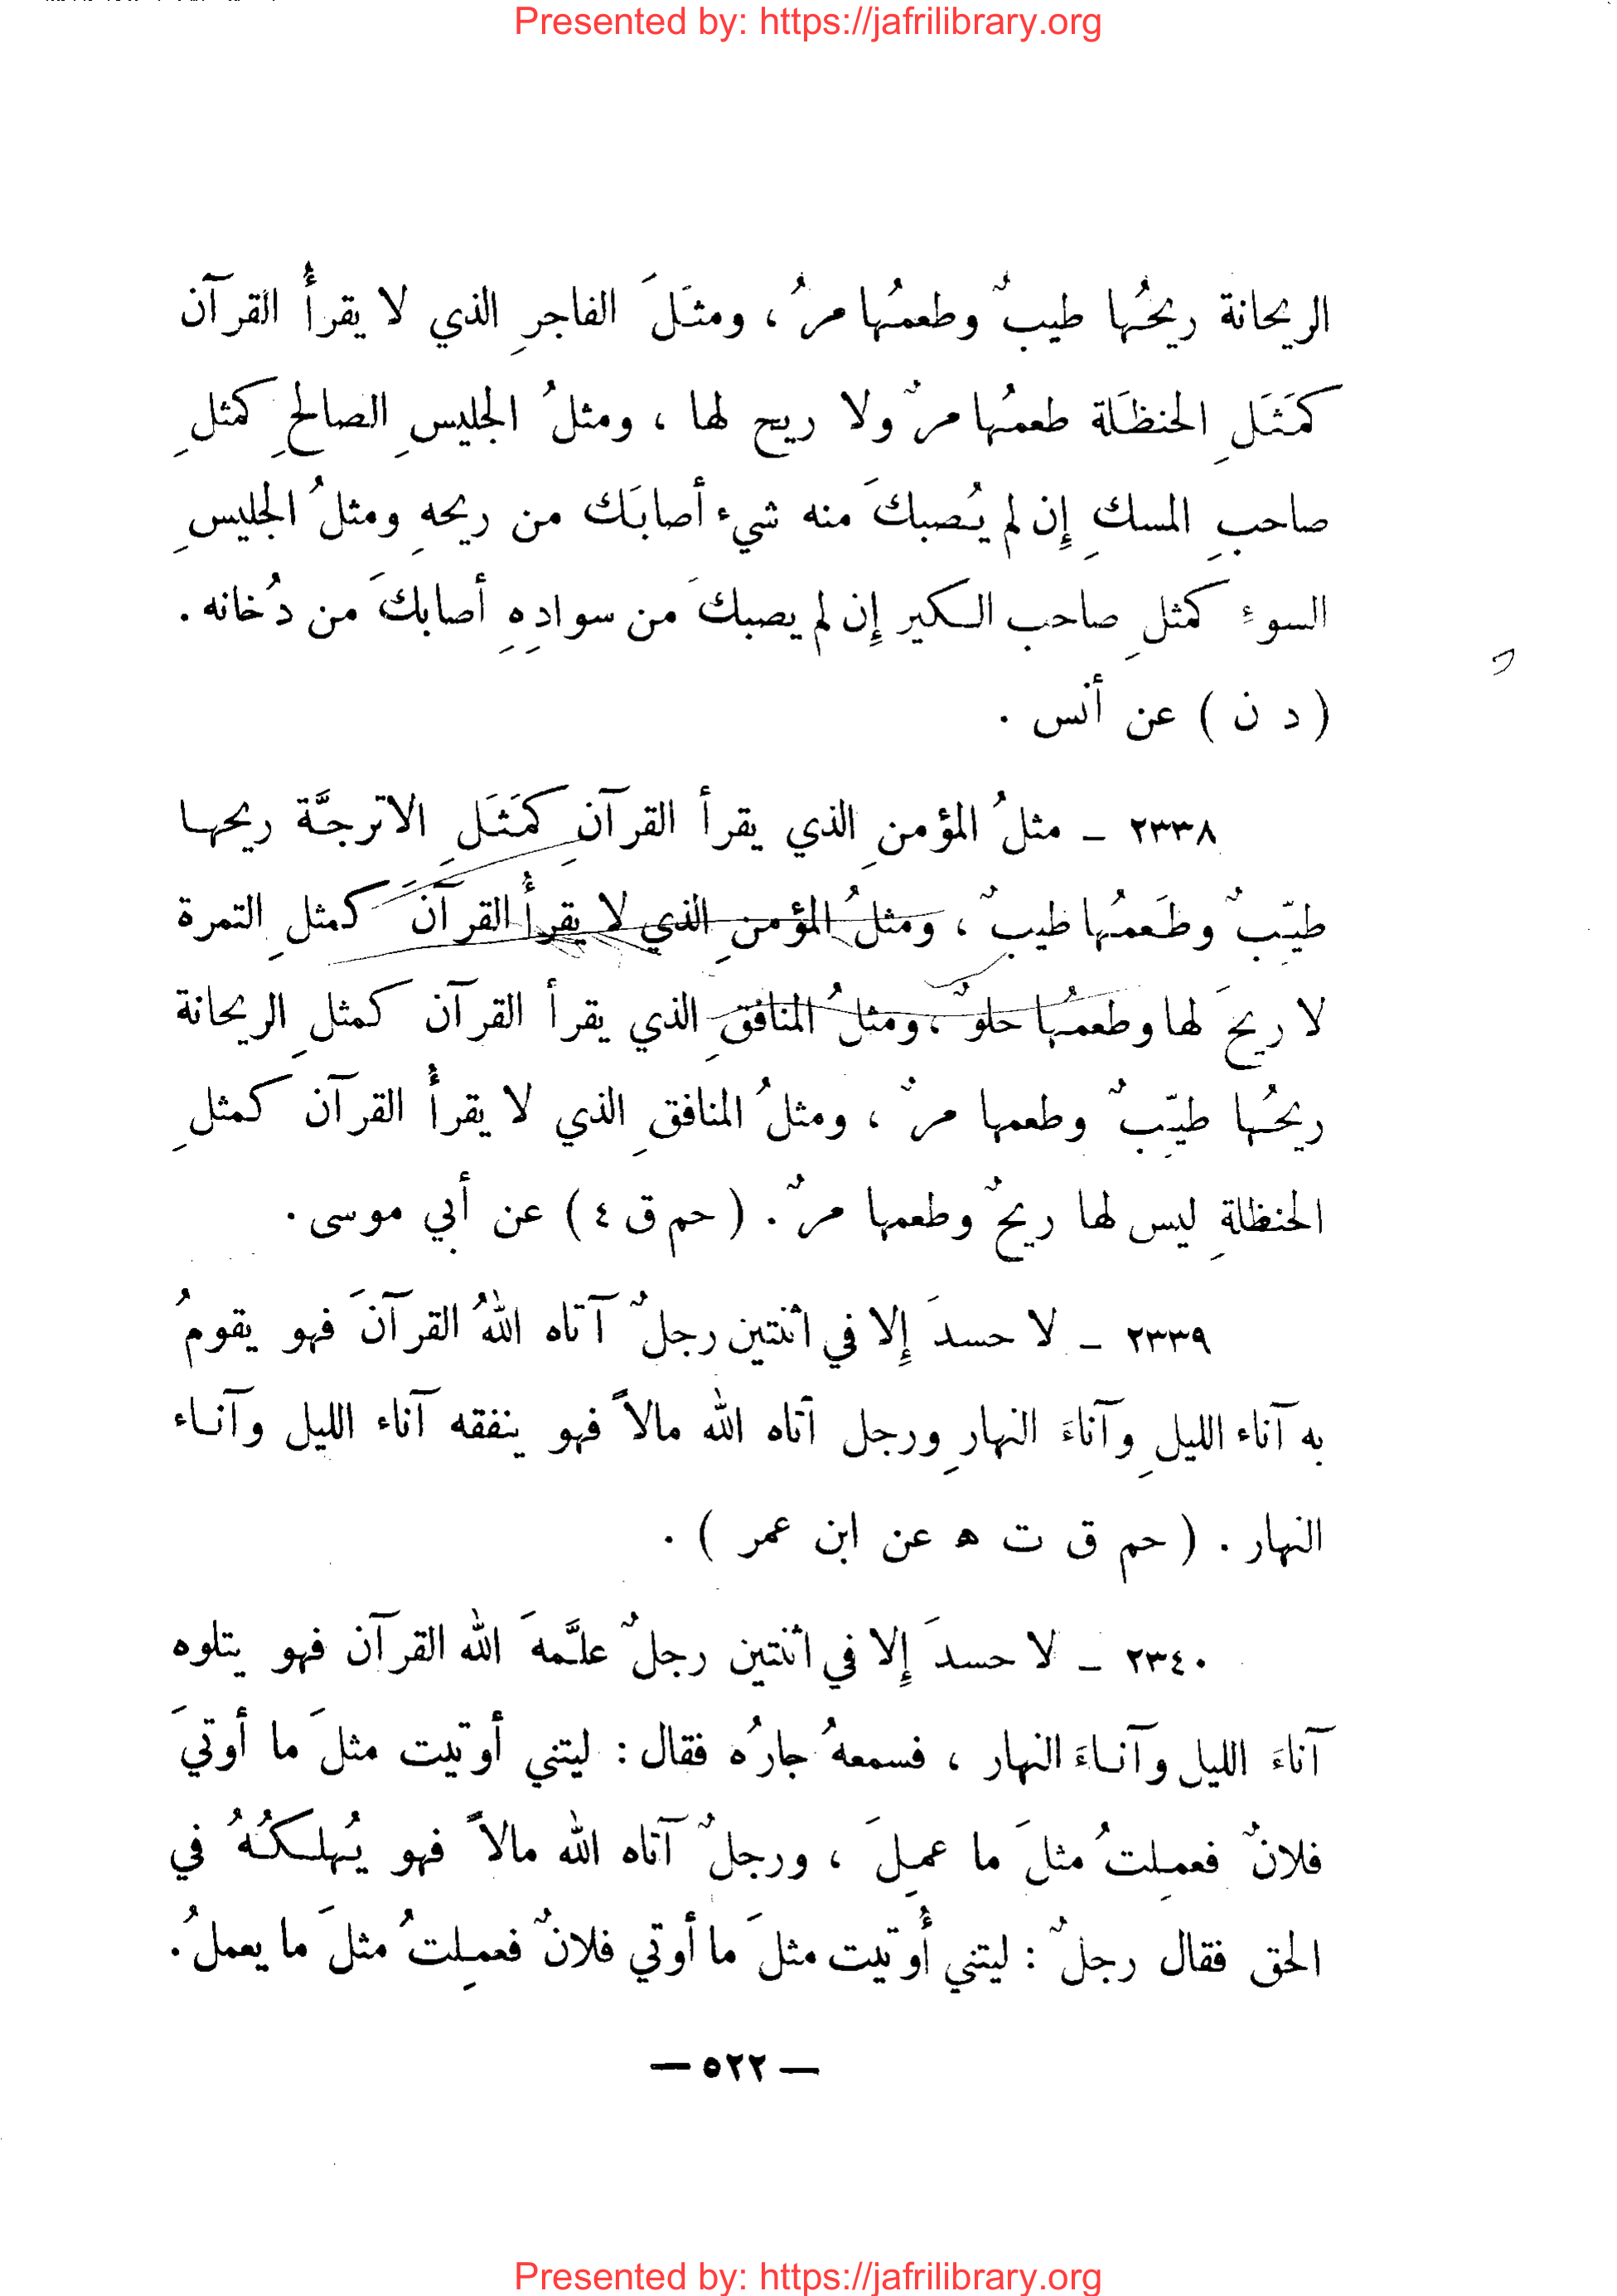 Presented by: https://jafrilibrary.org
الريحانة ريحُها طيبٌ وطعمُها مرُ ، ومثَلَ الفاجرِ الذي لا يقرأُ القرآن
كمَثَلِ الحنظَلة طعمُها مرٌ ولا ريح لها ، ومثلُ الجليسِ الصالحِ كمثلِ
صاحبِ المسكِ إِن لم يُصبكَ منه شيء أصابَك من ريحهِ ومثلُ الجليسِ
السوءِ كمثلِ صاحب الكير إِن لم يصبكَ من سوادِهِ أصابكَ من دُخانه .
( د ن ) عن أنس .
٢٣٣٨ ـ مثلُ المؤمنِ الذي يقرأ القرآنِ كمَثَلِ الاترجَّة ريحها
طيّبٌ وطَعمُها طيبٌ ، ومثلُ المؤمنِ الذي لا يقرأُ القرآنَ كمثلِ التمرة
لا ريحَ لها وطعمُها حلوٌ ، ومثلُ المنافقِ الذي يقرأ القرآن كمثلِ الريحانة
ريحُها طيّبٌ وطعمها مرٌ ، ومثلُ المنافقِ الذي لا يقرأُ القرآن كمثلِ
الحنظلةِ ليس لها ريحٌ وطعمها مرٌ . ( حم ق ٤ ) عن أبي موسى .
٢٣٣٩ ـ لا حسدَ إِلا في اثنتين رجلٌ آتاه اللهُ القرآنَ فهو يقومُ
به آناء الليلِ وآناءَ النهارِ ورجل آتاه الله مالاً فهو ينفقه آناء الليل وآناء
النهار . ( حم ق ت ه عن ابن عمر ) .
٢٣٤٠ ـ لا حسدَ إِلا في اثنتين رجلٌ علَّمهَ الله القرآن فهو يتلوه
آناءَ الليل وآناءَ النهار ، فسمعهُ جارُه فقال : ليتني أوتيت مثلَ ما أوتيَ
فلانٌ فعمِلتُ مثلَ ما عمِلَ ، ورجلٌ آتاه الله مالاً فهو يُهلكُهُ في
الحق فقال رجلٌ : ليتني أُوتيت مثلَ ما أوتي فلانٌ فعمِلتُ مثلَ ما يعملُ .
— ٥٢٢ —
Presented by: https://jafrilibrary.org